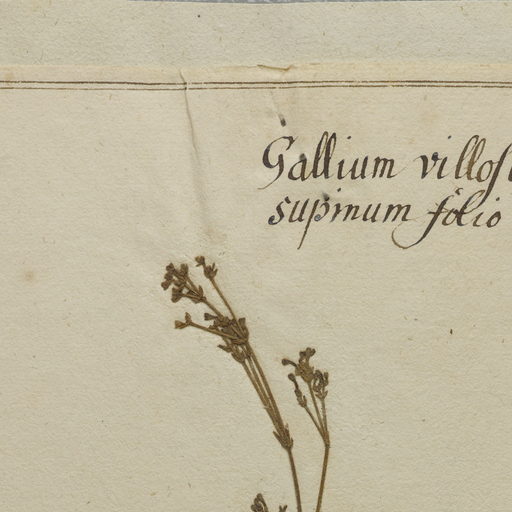 Gallium villoſ
supinum folio